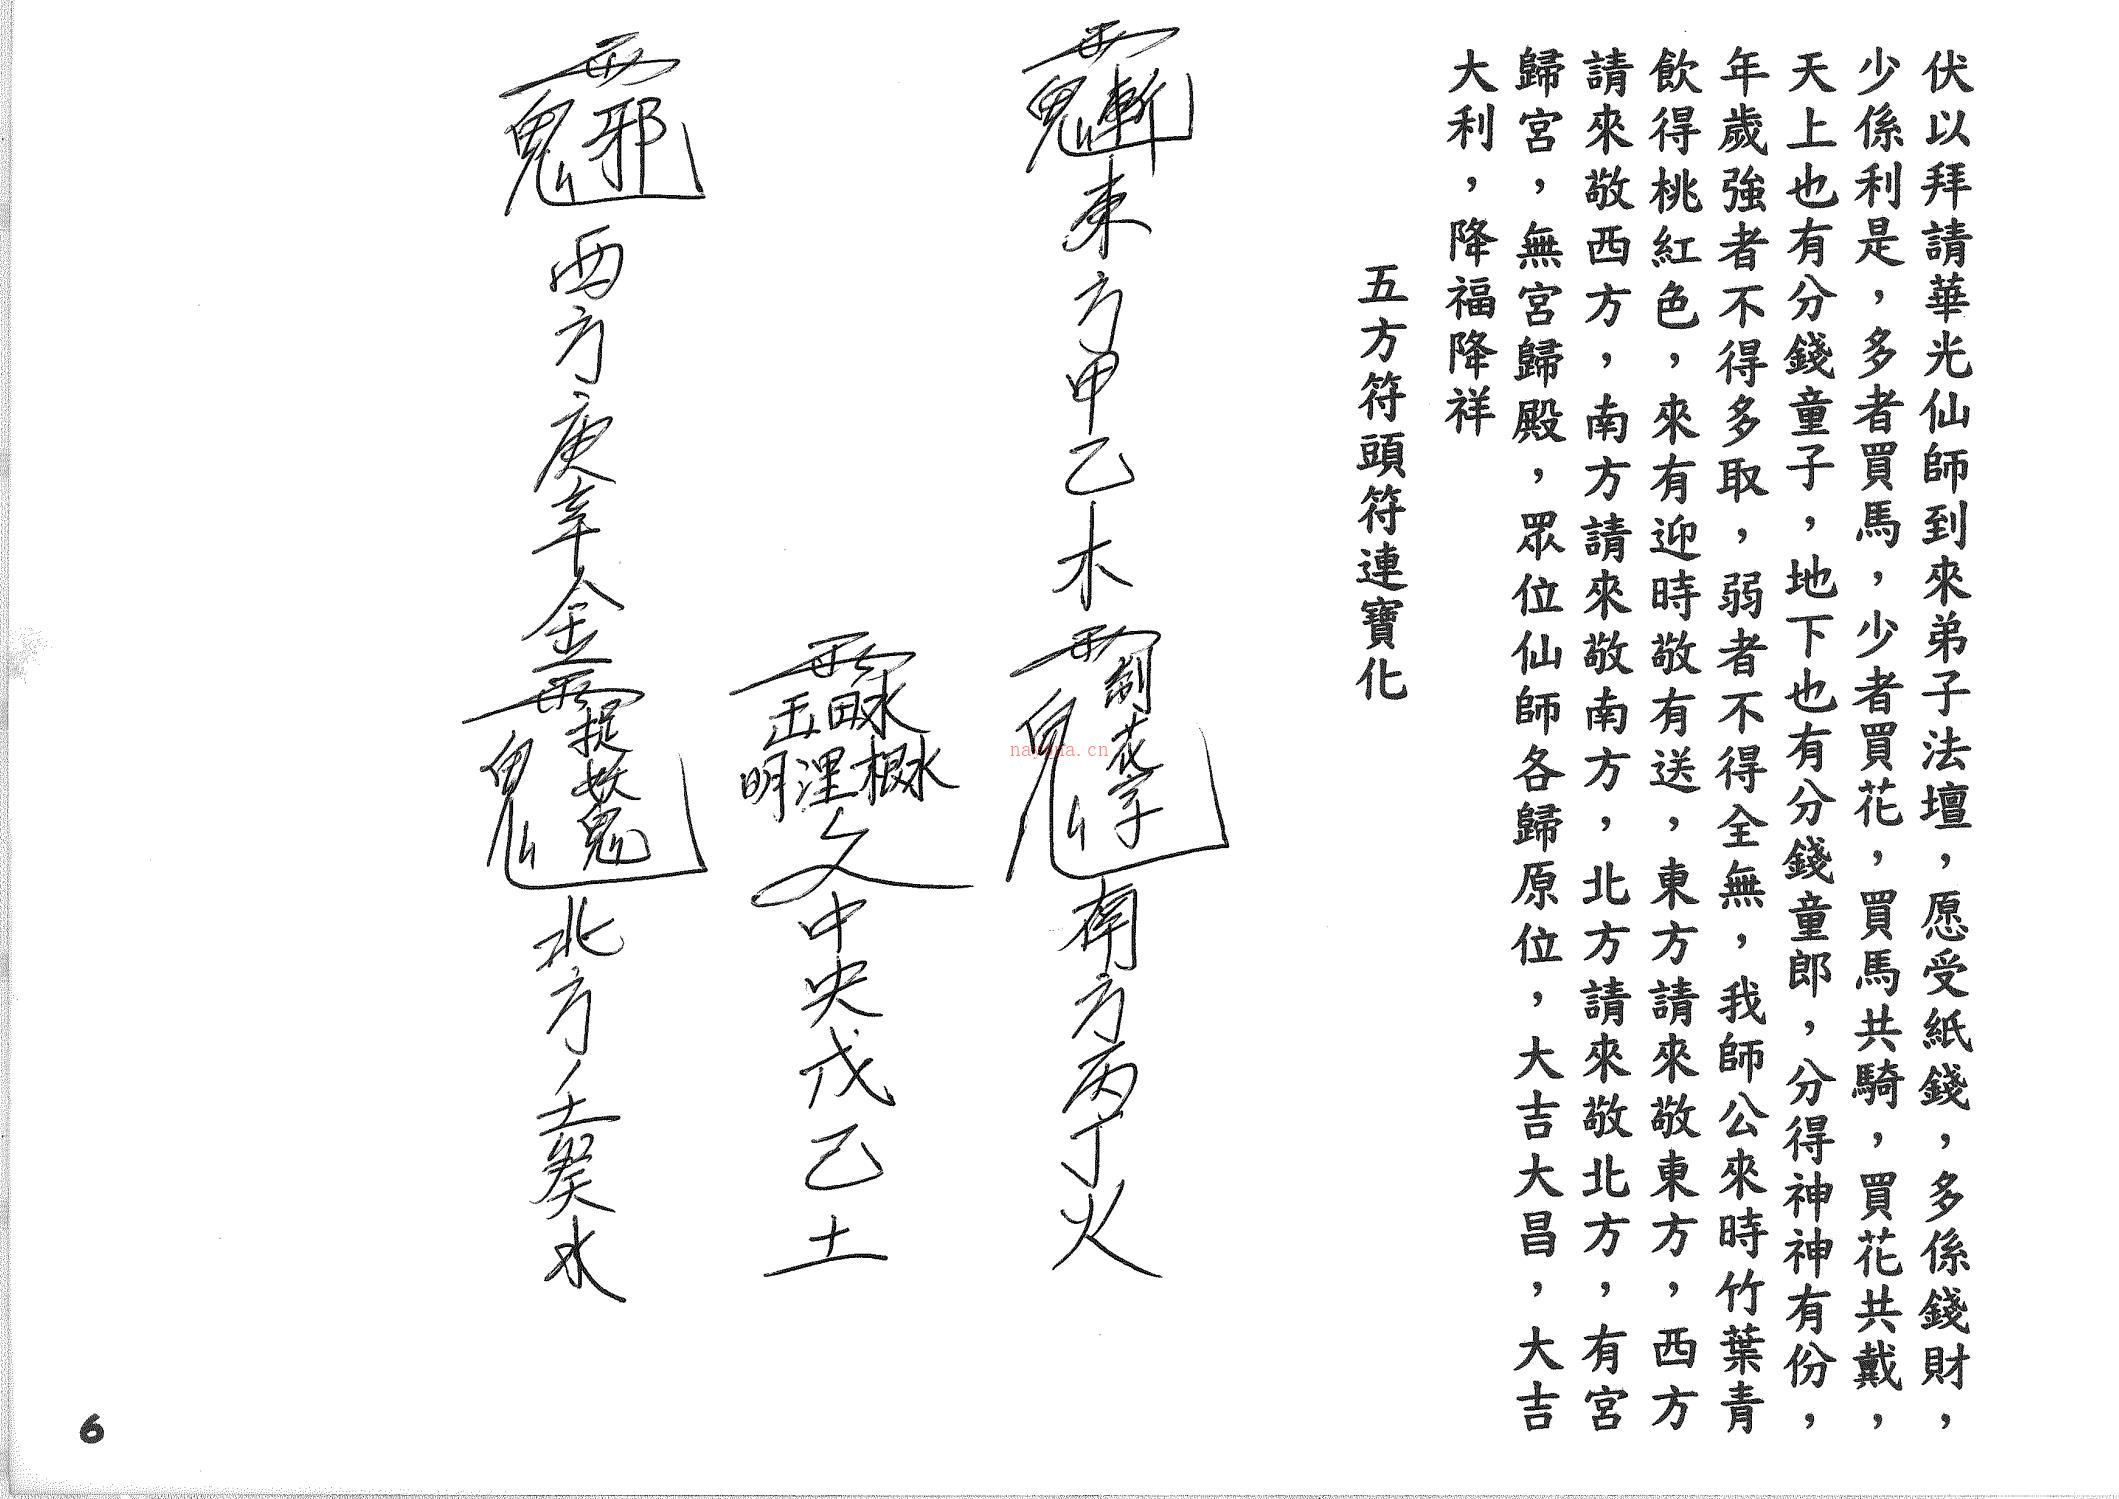 伏以拜請華光仙師到來弟子法壇，愿受紙錢，多係錢財，
少係利是，多者買馬，少者買花，買馬共騎，買花共戴，
天上也有分錢童子，地下也有分錢童郎，分得神神有份，
年歲強者不得多取，弱者不得全無，我師公來時竹葉青
飲得桃紅色，來有迎時敬有送，東方請來敬東方，西方
請來敬西方，南方請來敬南方，北方請來敬北方，有宮
歸宮，無宮歸殿，眾位仙師各歸原位，大吉大昌，大吉
大利，降福降祥
五方符頭符連寶化
斬鬼東方甲乙木
制花字鬼南方丙丁火
中央戊己土
邪鬼西方庚辛金
捉妖鬼鬼北方壬癸水
nayona.cn
6